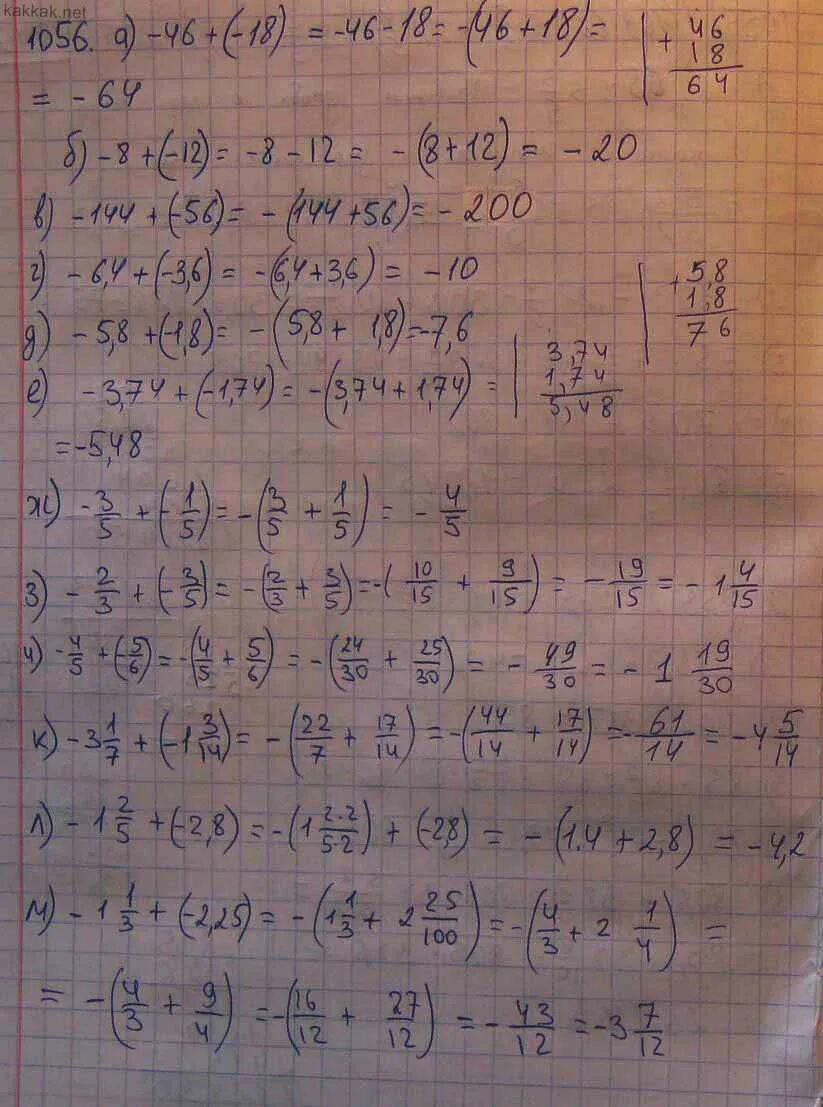 kakkak.net
1056. а) -46 + (-18) = -46 - 18 = -(46 + 18) =
+ 46
18
64
= - 64
б) -8 + (-12) = -8 - 12 = - (8 + 12) = - 20
в) -144 + (-56) = - (144 + 56) = - 200
г) - 6,4 + (-3,6) = -(6,4 + 3,6) = -10
д) - 5,8 + (-1,8) = - (5,8 + 1,8) = -7,6
+ 5,8
1,8
7 6
е) -3,74 + (-1,74) = -(3,74 + 1,74) =
3,74
1,74
5,48
= -5,48
ж) -3/5 + (-1/5) = -(3/5 + 1/5) = - 4/5
з) - 2/3 + (-3/5) = -(2/3 + 3/5) = -(10/15 + 9/15) = - 19/15 = - 1 4/15
и) -4/5 + (-5/6) = -(4/5 + 5/6) = -(24/30 + 25/30) = - 49/30 = - 1 19/30
к) -3 1/7 + (-1 3/14) = -(22/7 + 17/14) = -(44/14 + 17/14) = -61/14 = -4 5/14
л) - 1 2/5 + (-2,8) = -(1 2·2/5·2) + (-2,8) = - (1.4 + 2,8) = -4,2
м) - 1 1/3 + (-2,25) = -(1 1/3 + 2 25/100) = -(4/3 + 2 1/4) =
= -(4/3 + 9/4) = -(16/12 + 27/12) = - 43/12 = -3 7/12